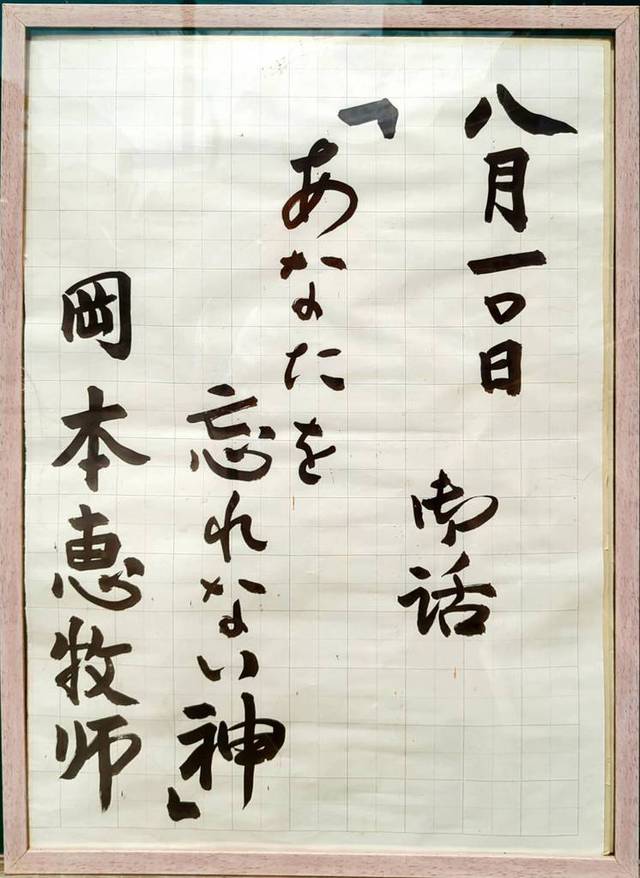 八月一〇日
御話
「あなたを
忘れない神」
岡本恵牧师